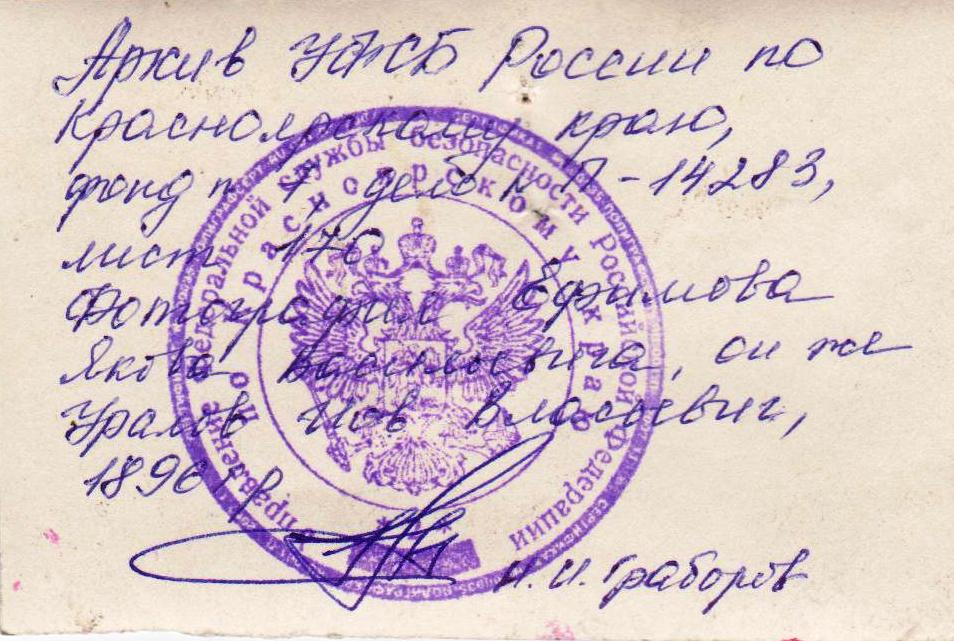 Архив УФСБ России по
Красноярскому краю,
фонд № 7, дело № П-14283,
лист 176
Фотография Ефимова
Якова Васильевича, он же
Уралов Иов Власьевич,
1896 г.р.
И.И. Граборов
Управление Федеральной службы безопасности Российской Федерации
по Красноярскому краю